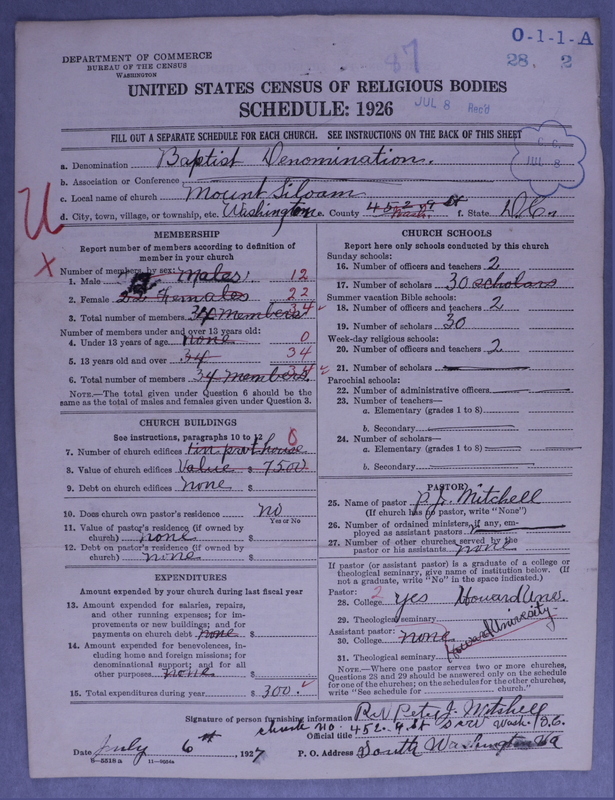 O-1-1-A
87
28. 2
DEPARTMENT OF COMMERCE
BUREAU OF THE CENSUS
WASHINGTON
UNITED STATES CENSUS OF RELIGIOUS BODIES
SCHEDULE: 1926
JUL 8 Rec'd
FILL OUT A SEPARATE SCHEDULE FOR EACH CHURCH. SEE INSTRUCTIONS ON THE BACK OF THIS SHEET
JUL 8
a. Denomination Baptist Denomination.
b. Association or Conference
c. Local name of church Mount Siloam
d. City, town, village, or township, etc. Washington e. County Wash. f. State D.C.
MEMBERSHIP
Report number of members according to definition of
member in your church
Number of members by sex:
1. Male males. 12
2. Female 22 Females 22
3. Total number of members 34 members 34
Number of members under and over 13 years old:
4. Under 13 years of age none 0
5. 13 years old and over 34 34
6. Total number of members 34 members. 34
NOTE.—The total given under Question 6 should be the
same as the total of males and females given under Question 3.
CHURCH BUILDINGS
See instructions, paragraphs 10 to 12
7. Number of church edifices 0
8. Value of church edifices Value $ 7500
9. Debt on church edifices none $
10. Does church own pastor's residence? no
Yes or No
11. Value of pastor's residence (if owned by
church) none $
12. Debt on pastor's residence (if owned by
church) none $
EXPENDITURES
Amount expended by your church during last fiscal year
13. Amount expended for salaries, repairs,
and other running expenses; for im-
provements or new buildings; and for
payments on church debt none $
14. Amount expended for benevolences, in-
cluding home and foreign missions; for
denominational support; and for all
other purposes none $
15. Total expenditures during year $ 300.
CHURCH SCHOOLS
Report here only schools conducted by this church
Sunday schools:
16. Number of officers and teachers 2
17. Number of scholars 30 scholars
Summer vacation Bible schools:
18. Number of officers and teachers 2
19. Number of scholars 30
Week-day religious schools:
20. Number of officers and teachers 2
21. Number of scholars
Parochial schools:
22. Number of administrative officers
23. Number of teachers—
a. Elementary (grades 1 to 8)
b. Secondary
24. Number of scholars—
a. Elementary (grades 1 to 8)
b. Secondary
PASTOR
25. Name of pastor P. J. Mitchell
(If church has no pastor, write "None")
26. Number of ordained ministers, if any, em-
ployed as assistant pastors
27. Number of other churches served by the
pastor or his assistants none
If pastor (or assistant pastor) is a graduate of a college or
theological seminary, give name of institution below. (If
not a graduate, write "No" in the space indicated.)
Pastor: 2
28. College yes Howard Une.
29. Theological seminary
Assistant pastor: Howard University.
30. College none
31. Theological seminary
NOTE.—Where one pastor serves two or more churches,
Questions 28 and 29 should be answered only on the schedule
for one of the churches; on the schedules for the other churches,
write "See schedule for church."
Signature of person furnishing information Rev Peter J. Mitshell
Official title church no. 452. 9 St S.W. Wash. D.C.
Date July 6th, 1927 P. O. Address South Washington Va
9-5518a 11-9554a